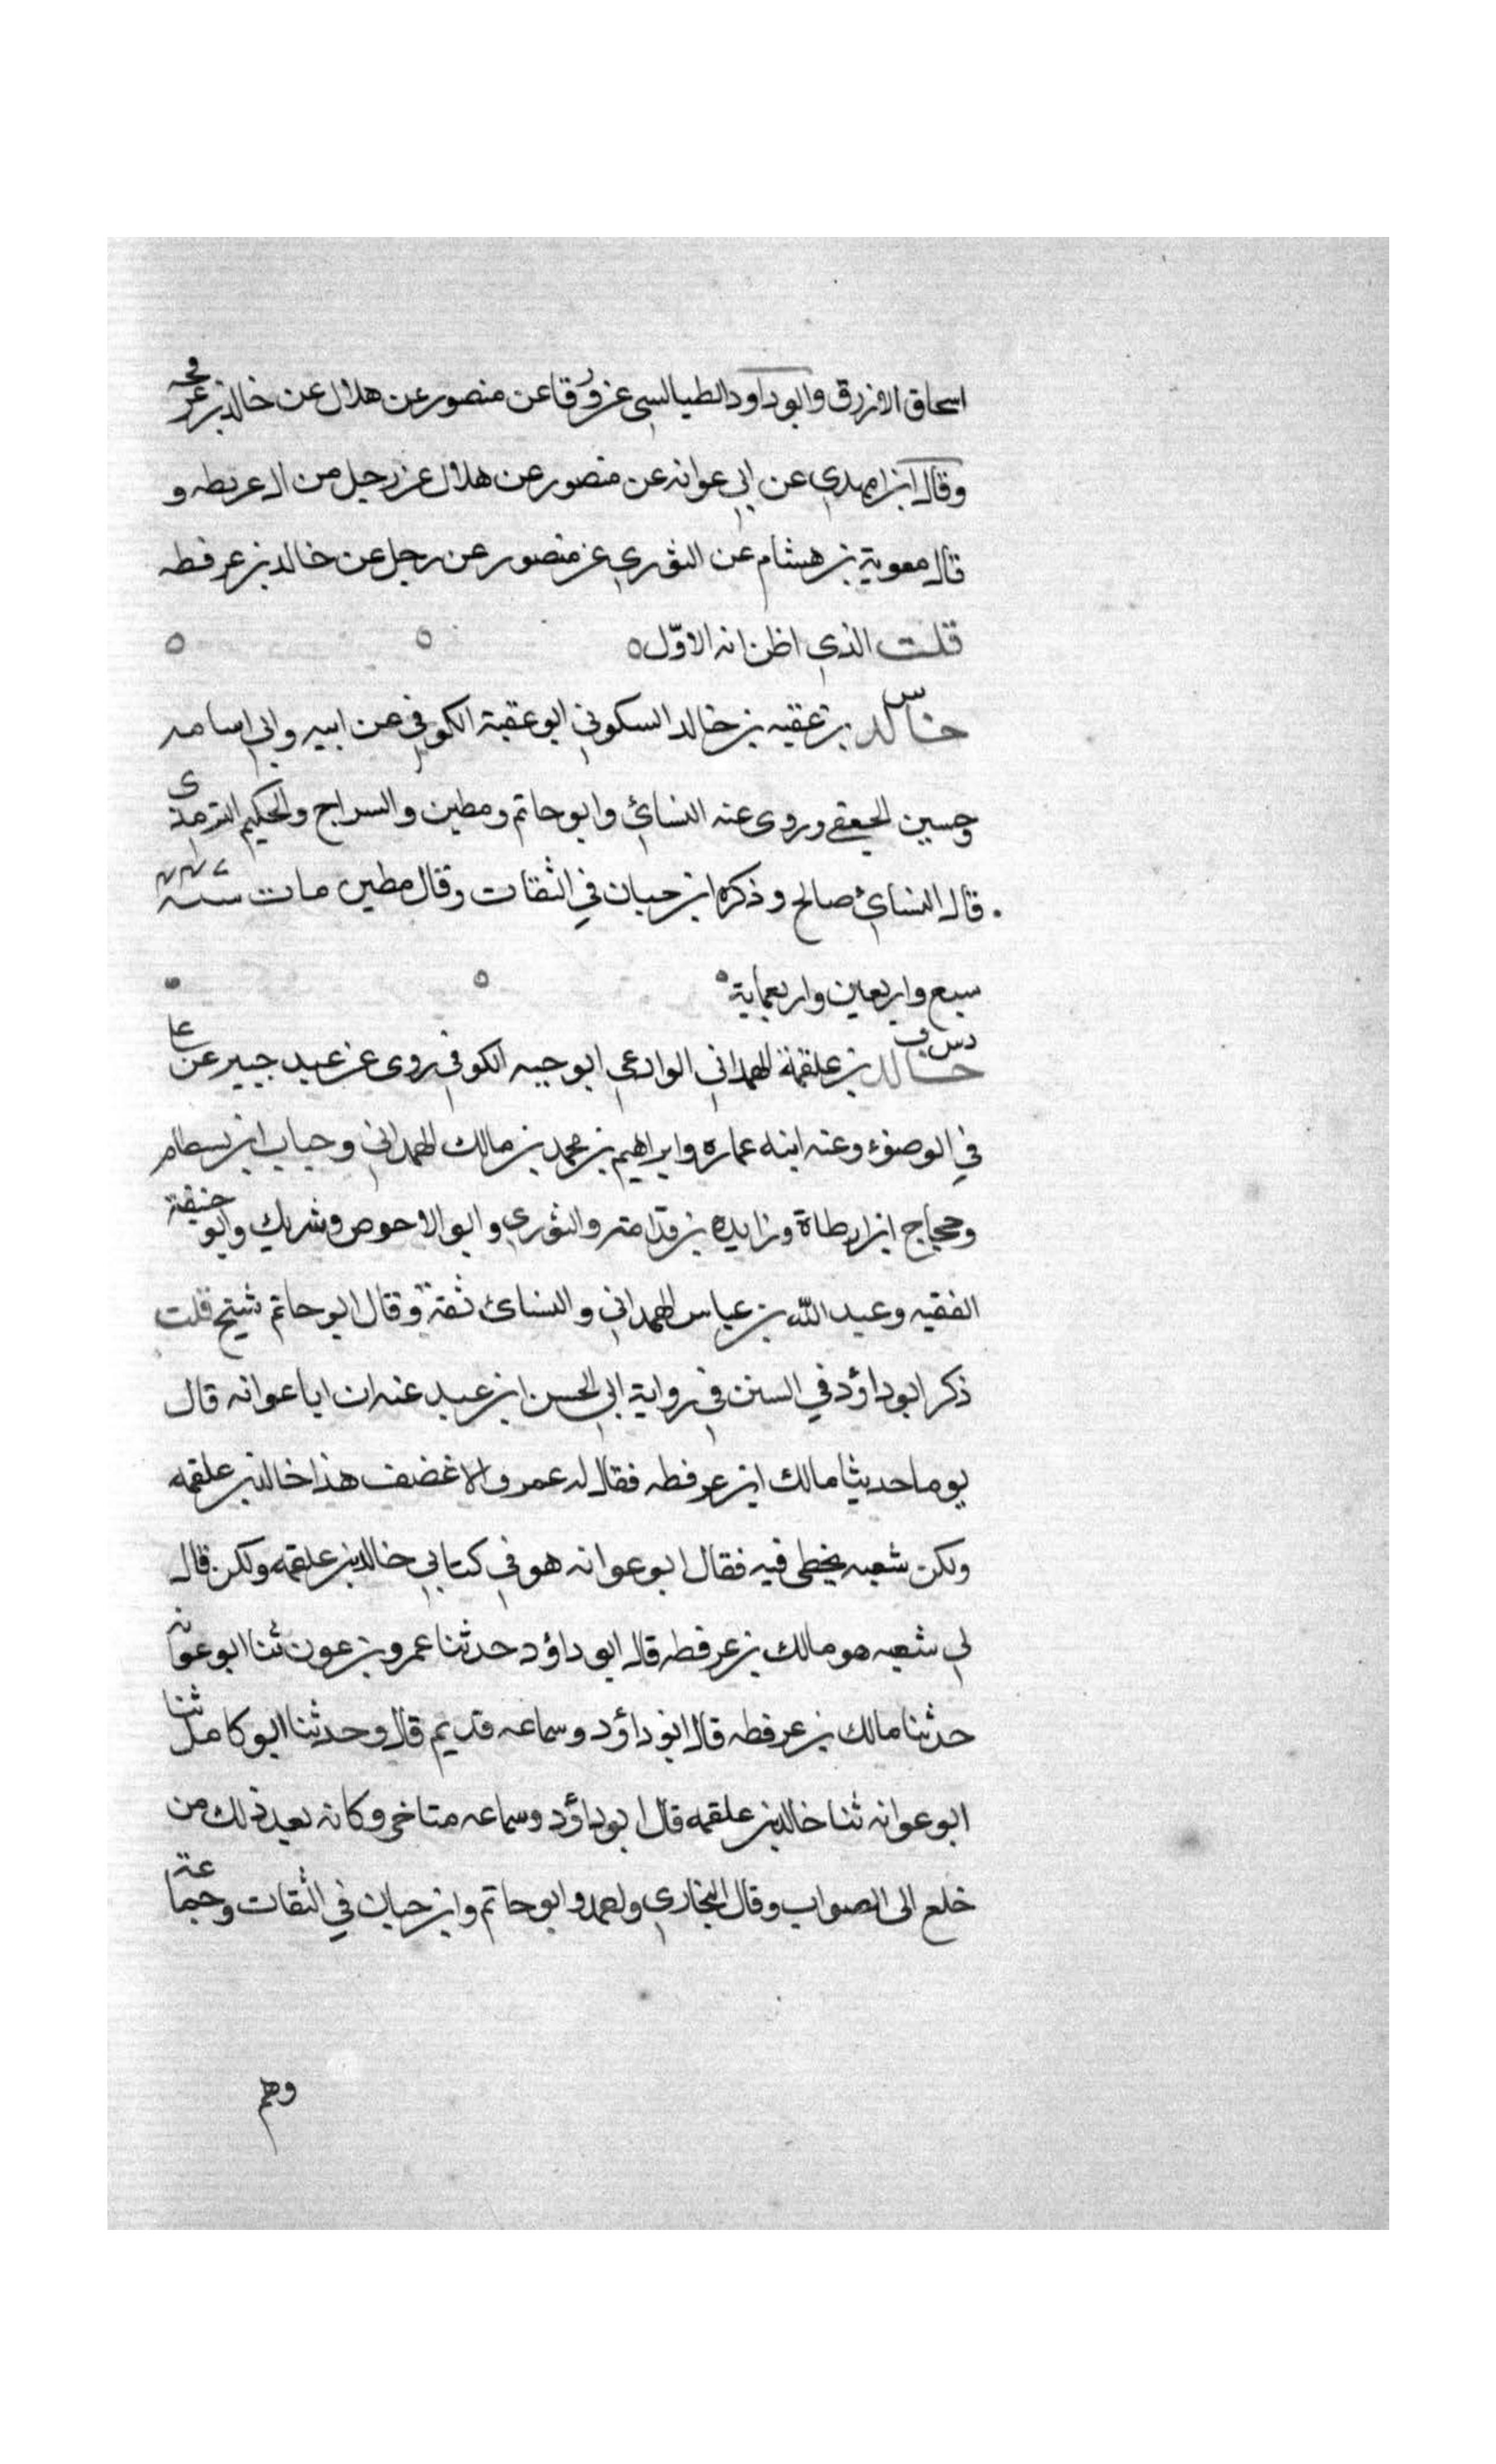 اسحاق الازرق وابو داود الطيالسى عن ورقا عن منصور عن هلال عن خالد بن عرفجه
وقال ابن مهدي عن ابي عوانه عن منصور عن هلال عن رجل من ال عريطه و
قال معوية بن هشام عن الثوري عن منصور عن رجل عن خالد بن عرفطه
قلت الذي اظن انه الاوّل ه ه ه
س
خالد بن عقبه بن خالد السكوني ابو عقبة الكوفي عن ابيه وابي اسامه
وحسين الجعفے وروى عنه النسائ وابو حاتم ومطين والسراج والحكيم الترمذى
قال النسائ صالح وذكره ابن حبان في الثقات وقال مطين مات سنه
سبع واربعين واربعماية ه ه
دس ف
خالد بن علقمة الهمداني الوادعي ابو حيه الكوفي روى عن عبد جبير عن عا
في الوضوء وعنه ابنه عماره وابراهيم بن محمد بن مالك الهمداني وحباب ابن بسطام
وحجاج ابن ارطاة وزايده بن قدامة والثوري وابو الاحوص وشريك وابو حنيفة
الفقيه وعبد اللّه بن عباس الهمداني والنسائ ثقة وقال ابو حاتم شيخ قلت
ذكر ابو داؤد في السنن في رواية ابي الحسن ابن عبد عنه ان ابا عوانه قال
يوما حديثا مالك ابن عرفطه فقال له عمرو الاغضف هذا خالد بن علقمه
ولكن شعبه يخطى فيه فقال ابو عوانه هو في كتابي خالد بن علقمه ولكن قال
لي شعبه هو مالك بن عرفطه قال ابو داؤد حدثنا عمرو بن عون ثنا ابو عوانه
حدثنا مالك بن عرفطه قال ابو داؤد وسماعه قديم قال وحدثنا ابو كامل ثنا
ابو عوانه ثنا خالد بن علقمه قال ابو داؤد وسماعه متاخر وكانه بعد ذلك من
خلع الى الصواب وقال البخاري واحمد وابو حاتم وابن حبان في الثقات وجماعة
وهم